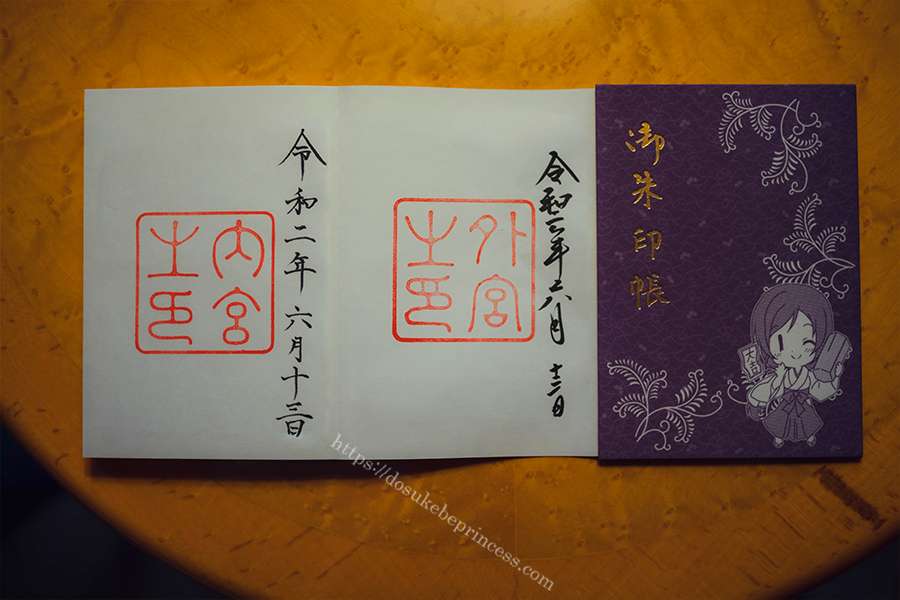 御朱印帳
大吉
令和二年六月
外宮
之印
令和二年六月十三日
内宮
之印
https://dosukebeprincess.com